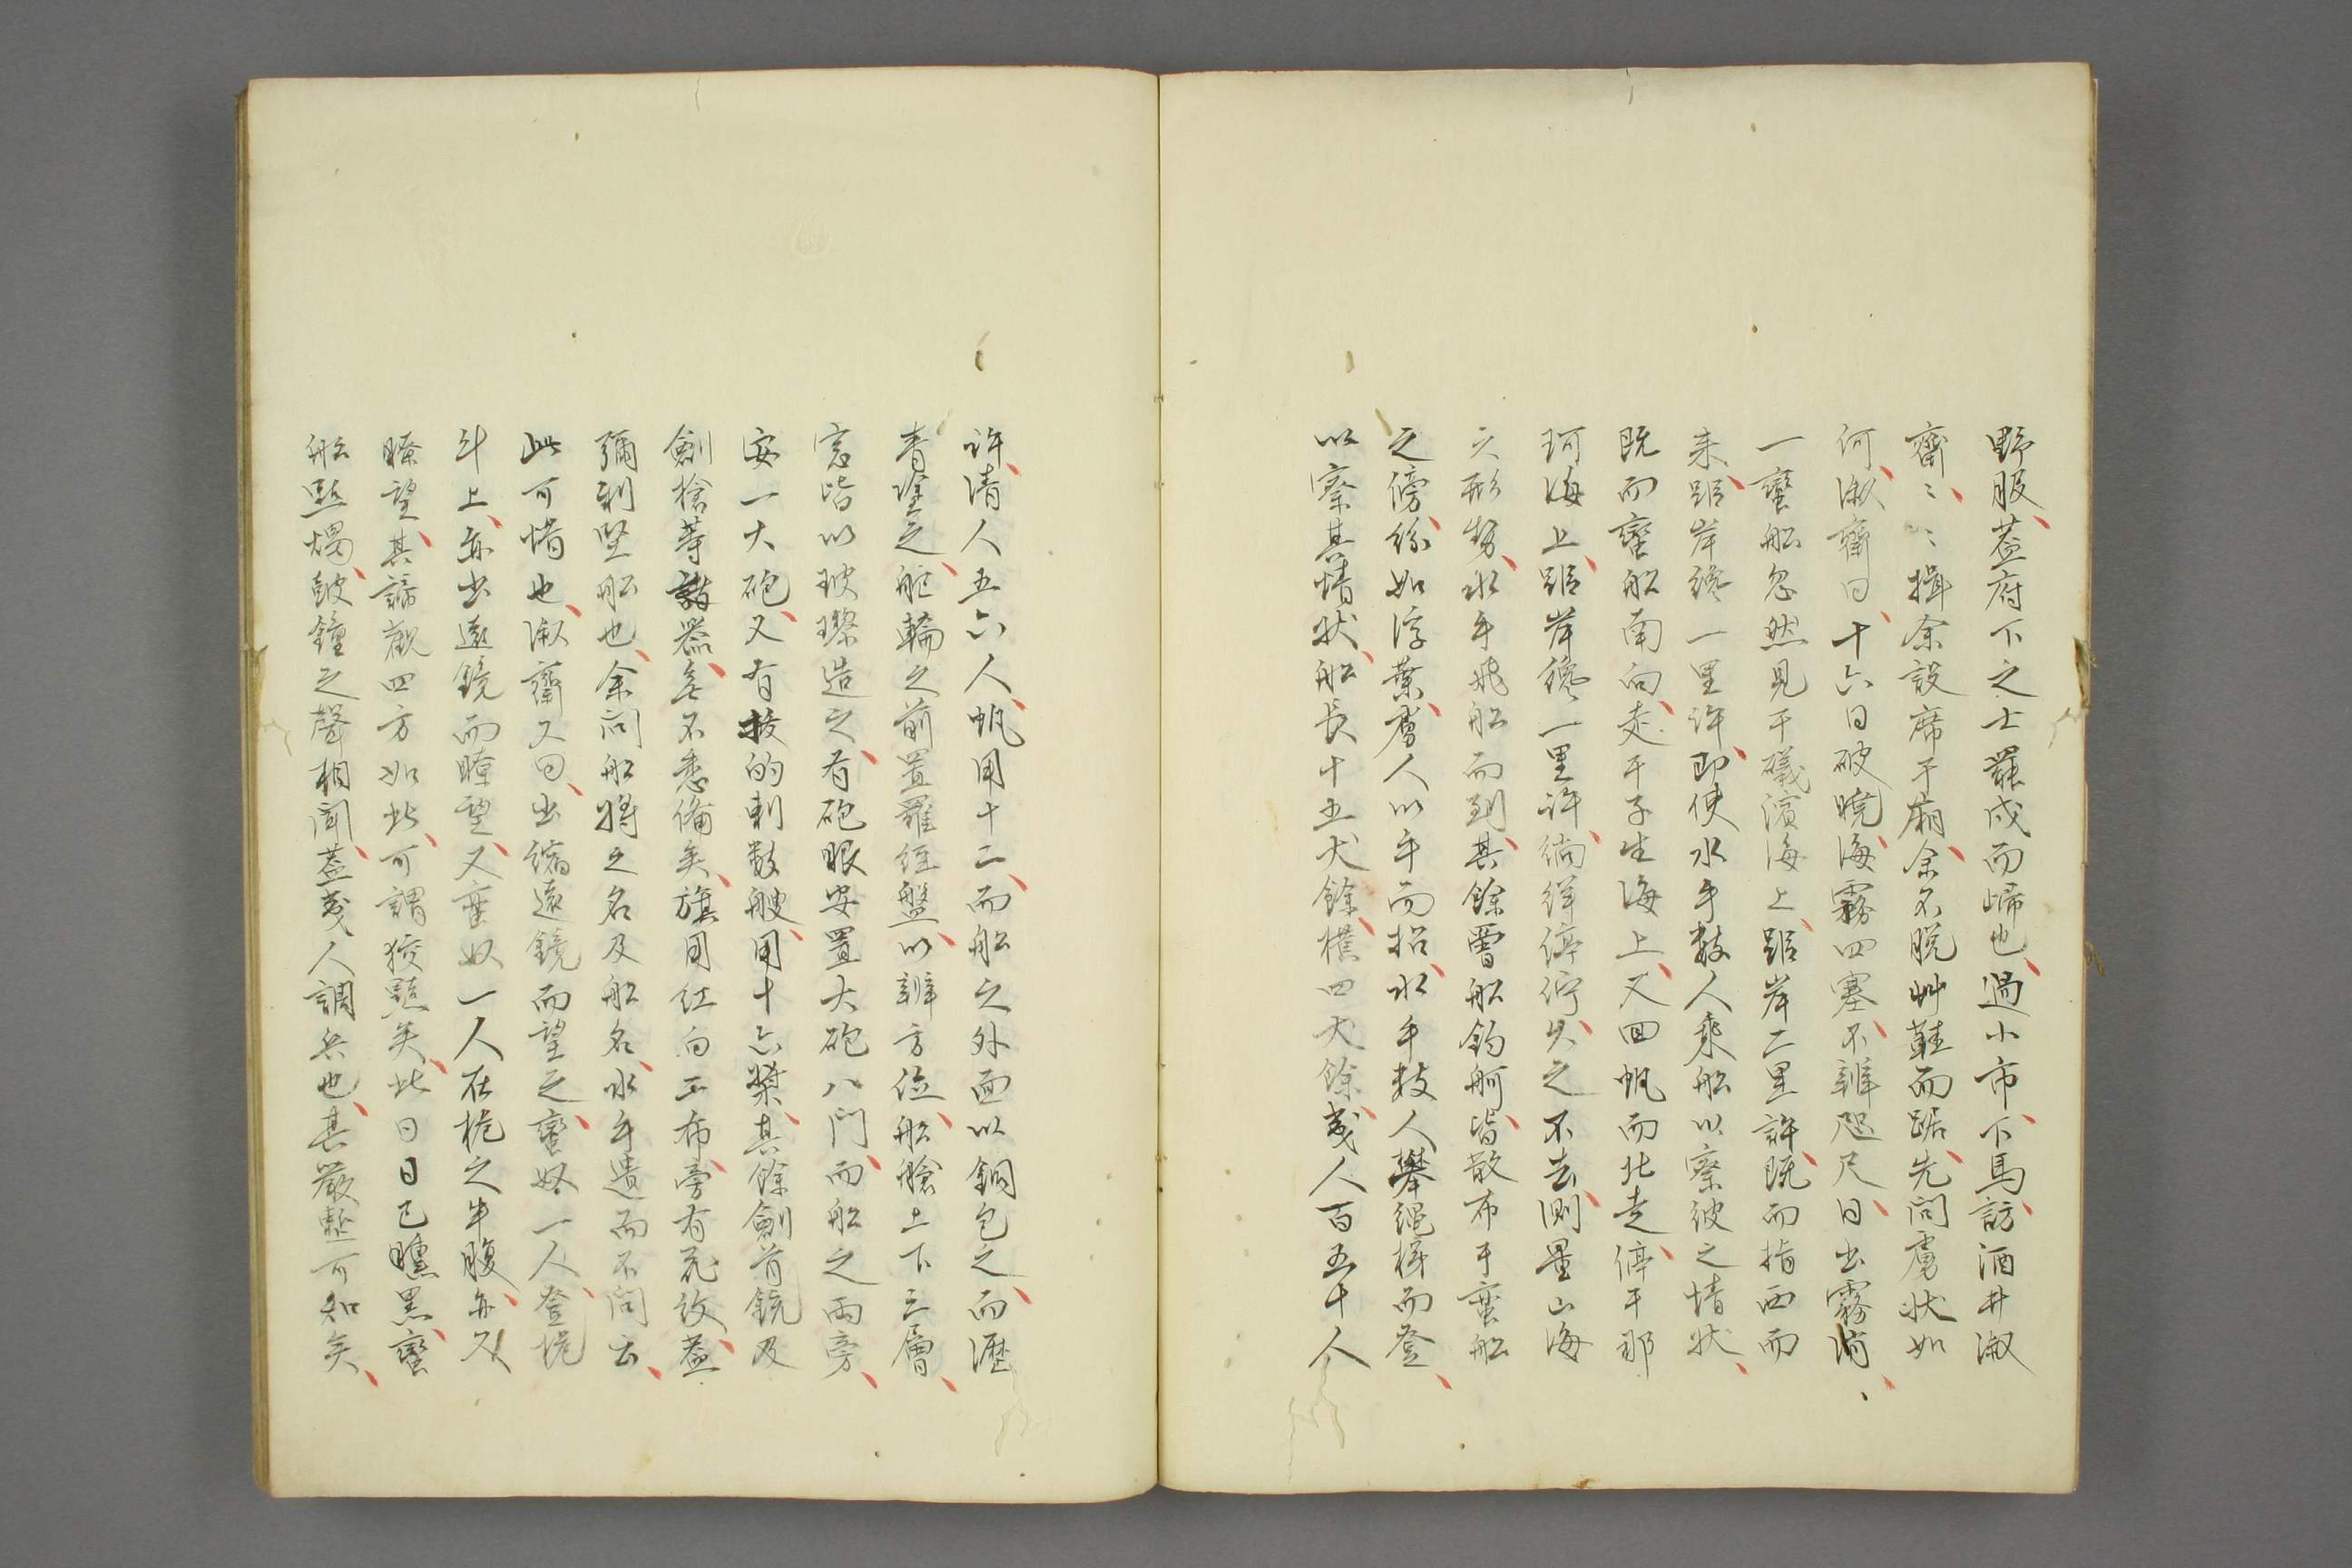 野服、蓋府下之士罷戍而歸也、過小市、下馬、訪酒井淑
齋、〻〻揖余設席于廂、余不脱艸鞋而踞、先問虜状如
何、淑齋曰、十六日破曉、海霧四塞、不辨咫尺、日出霧消、
一蠻船忽然見于礒濱海上、距岸二里許、既而指西而
来、距岸纔一里許、即使水手数人乘船以察彼之情状、
既而蠻船南向、走于子生海上、又回帆而北走、停于那
珂海上、距岸纔一里許、徜徉停佇、久之不去、測量山海
之形勢、水手飛船而到、其餘買船釣舸、皆散布于蠻船
之傍、紛如浮葉、蠻人以手而招、水手数人攀縄梯而登、
以察其情状、船長十五丈餘、横四丈餘、夷人百五十人
許、清人五六人、帆用十二、而船之外面以銅包之、而瀝
青塗之、舵輪之前置羅経盤、以辨方位、船艙上下三層、
窓皆以玻瓈造之、有砲眼安置大砲八門、而船之両旁、
安一大砲、又有投的剌数艘、用十六槳、其餘劍首銃及
劍槍等諸器、無不悉備矣、旗用紅白二布、旁有花紋、蓋
彌利堅船也、余問船将之名及船名、水手遺而不問云、
此可惜也、淑齋又曰、出縮遠鏡而望之、蠻奴一人、登桅
斗上、亦出遠鏡而瞭望、又蠻奴一人在桅之半腹、亦又
瞭望、其諦觀四方如此、可謂狡黠矣、此日日已曛黒、蠻
船點燭、鼓鐘之聲相聞、蓋夷人調兵也、其嚴整可知矣、